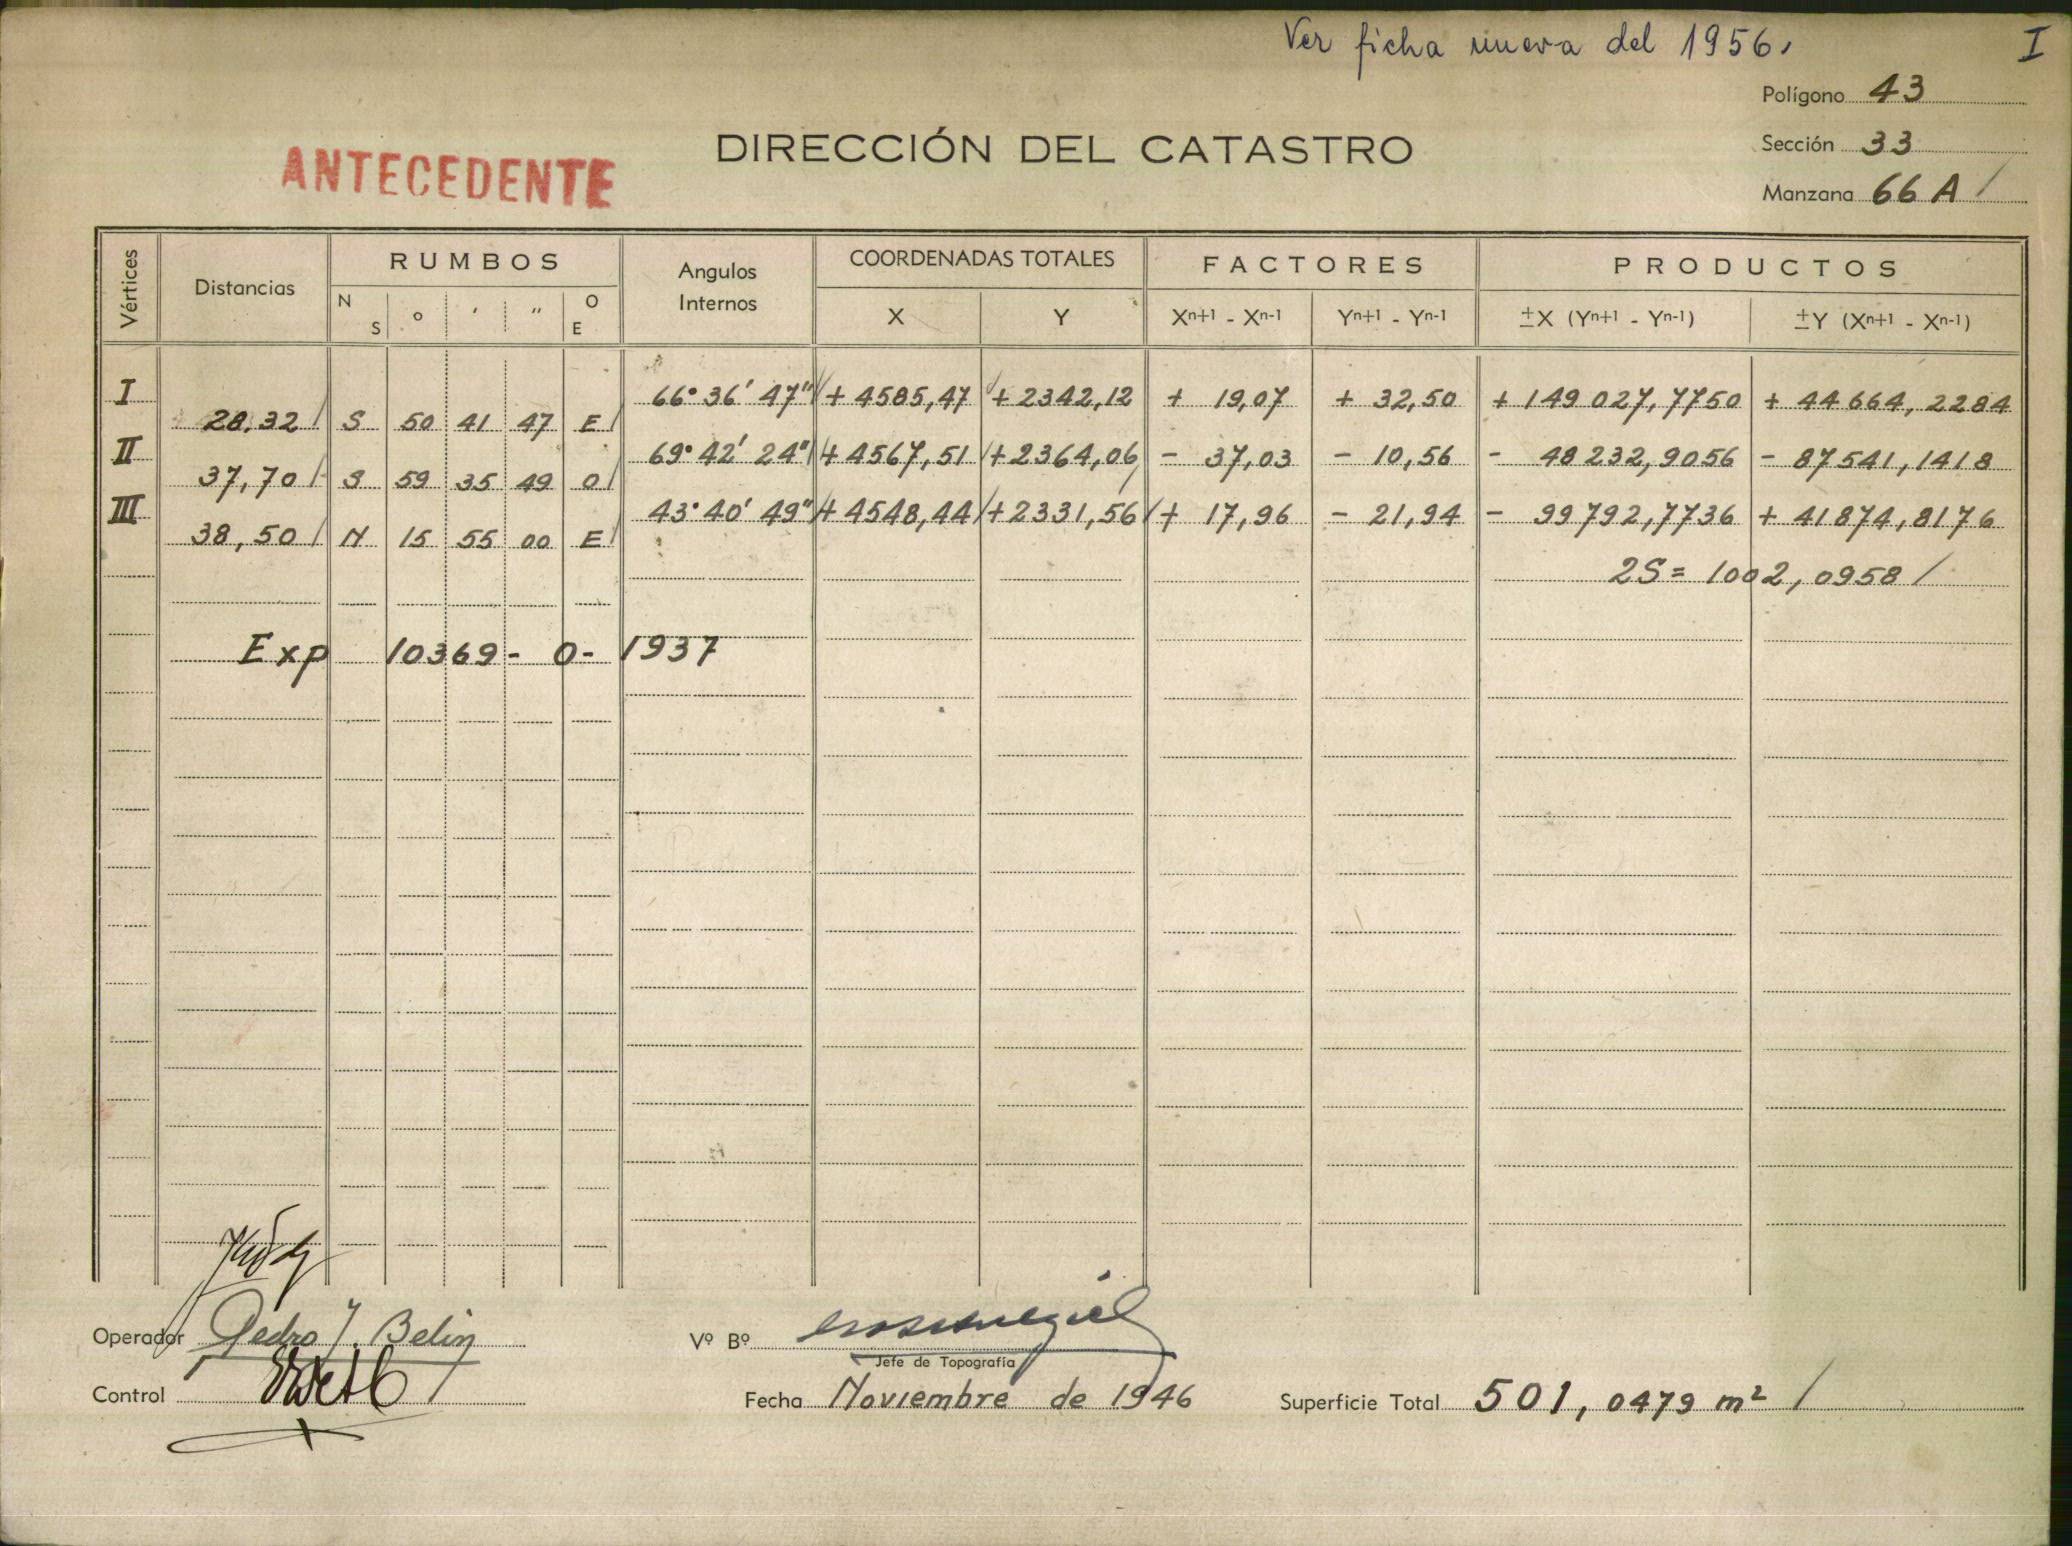 Ver ficha nueva del 1956.
I
Polígono 43
DIRECCIÓN DEL CATASTRO
Sección 33
ANTECEDENTE
Manzana 66 A /
Vértices Distancias RUMBOS Angulos Internos COORDENADAS TOTALES FACTORES PRODUCTOS
N S ° ′ ″ O E X Y Xⁿ⁺¹ - Xⁿ⁻¹ Yⁿ⁺¹ - Yⁿ⁻¹ ±X (Yⁿ⁺¹ - Yⁿ⁻¹) ±Y (Xⁿ⁺¹ - Xⁿ⁻¹)
I 66° 36′ 47″ + 4585,47 + 2342,12 + 19,07 + 32,50 + 149 027,7750 + 44 664,2284
28,32 / S 50 41 47 E /
II 69° 42′ 24″ + 4567,51 + 2364,06 - 37,03 - 10,56 - 48 232,9056 - 87541,1418
37,70 / S 59 35 49 O /
III 43° 40′ 49″ + 4548,44 + 2331,56 + 17,96 - 21,94 - 99 792,7736 + 41874,8176
38,50 / N 15 55 00 E /
2S = 1002,0958 /
Exp 10369 - 0 - 1937
Operador Pedro J. Belin
Vº Bº
Jefe de Topografía
Control
Fecha Noviembre de 1946
Superficie Total 501,0479 m² /